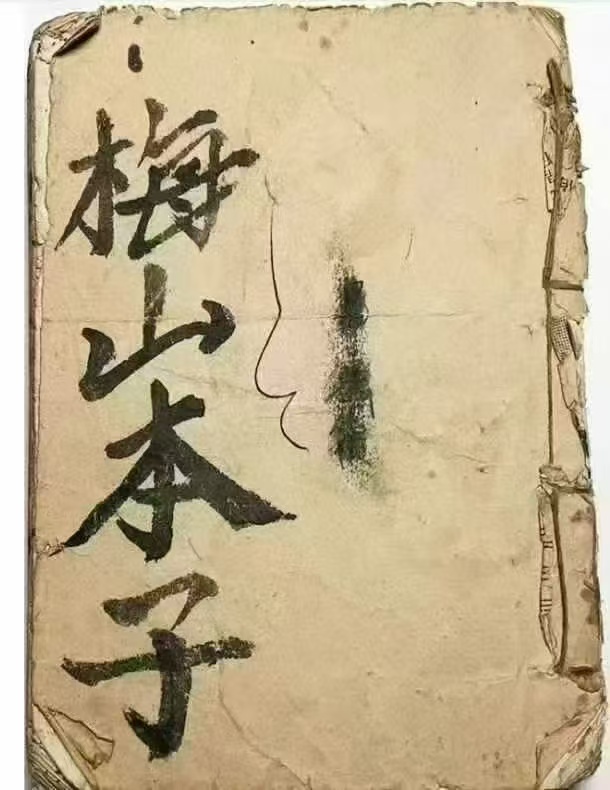 梅山本子